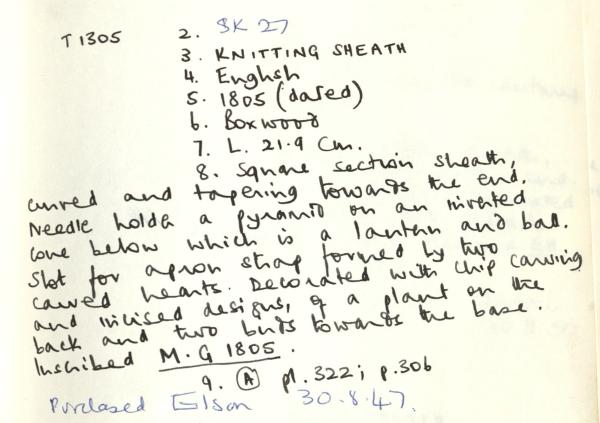 T 1305 2. SK 27
3. KNITTING SHEATH
4. English
5. 1805 (dated)
6. Boxwood
7. L. 21.9 Cm.
8. Square section sheath,
curved and tapering towards the end.
Needle holder a pyramid on an inverted
cone below which is a lantern and ball.
Slot for apron strap formed by two
carved hearts. Decorated with chip carving
and incised designs, of a plant on the
back and two birds towards the base.
Inscribed M.G 1805.
9. (A) pl. 322; p.306
Purchased Elson 30.8.47.